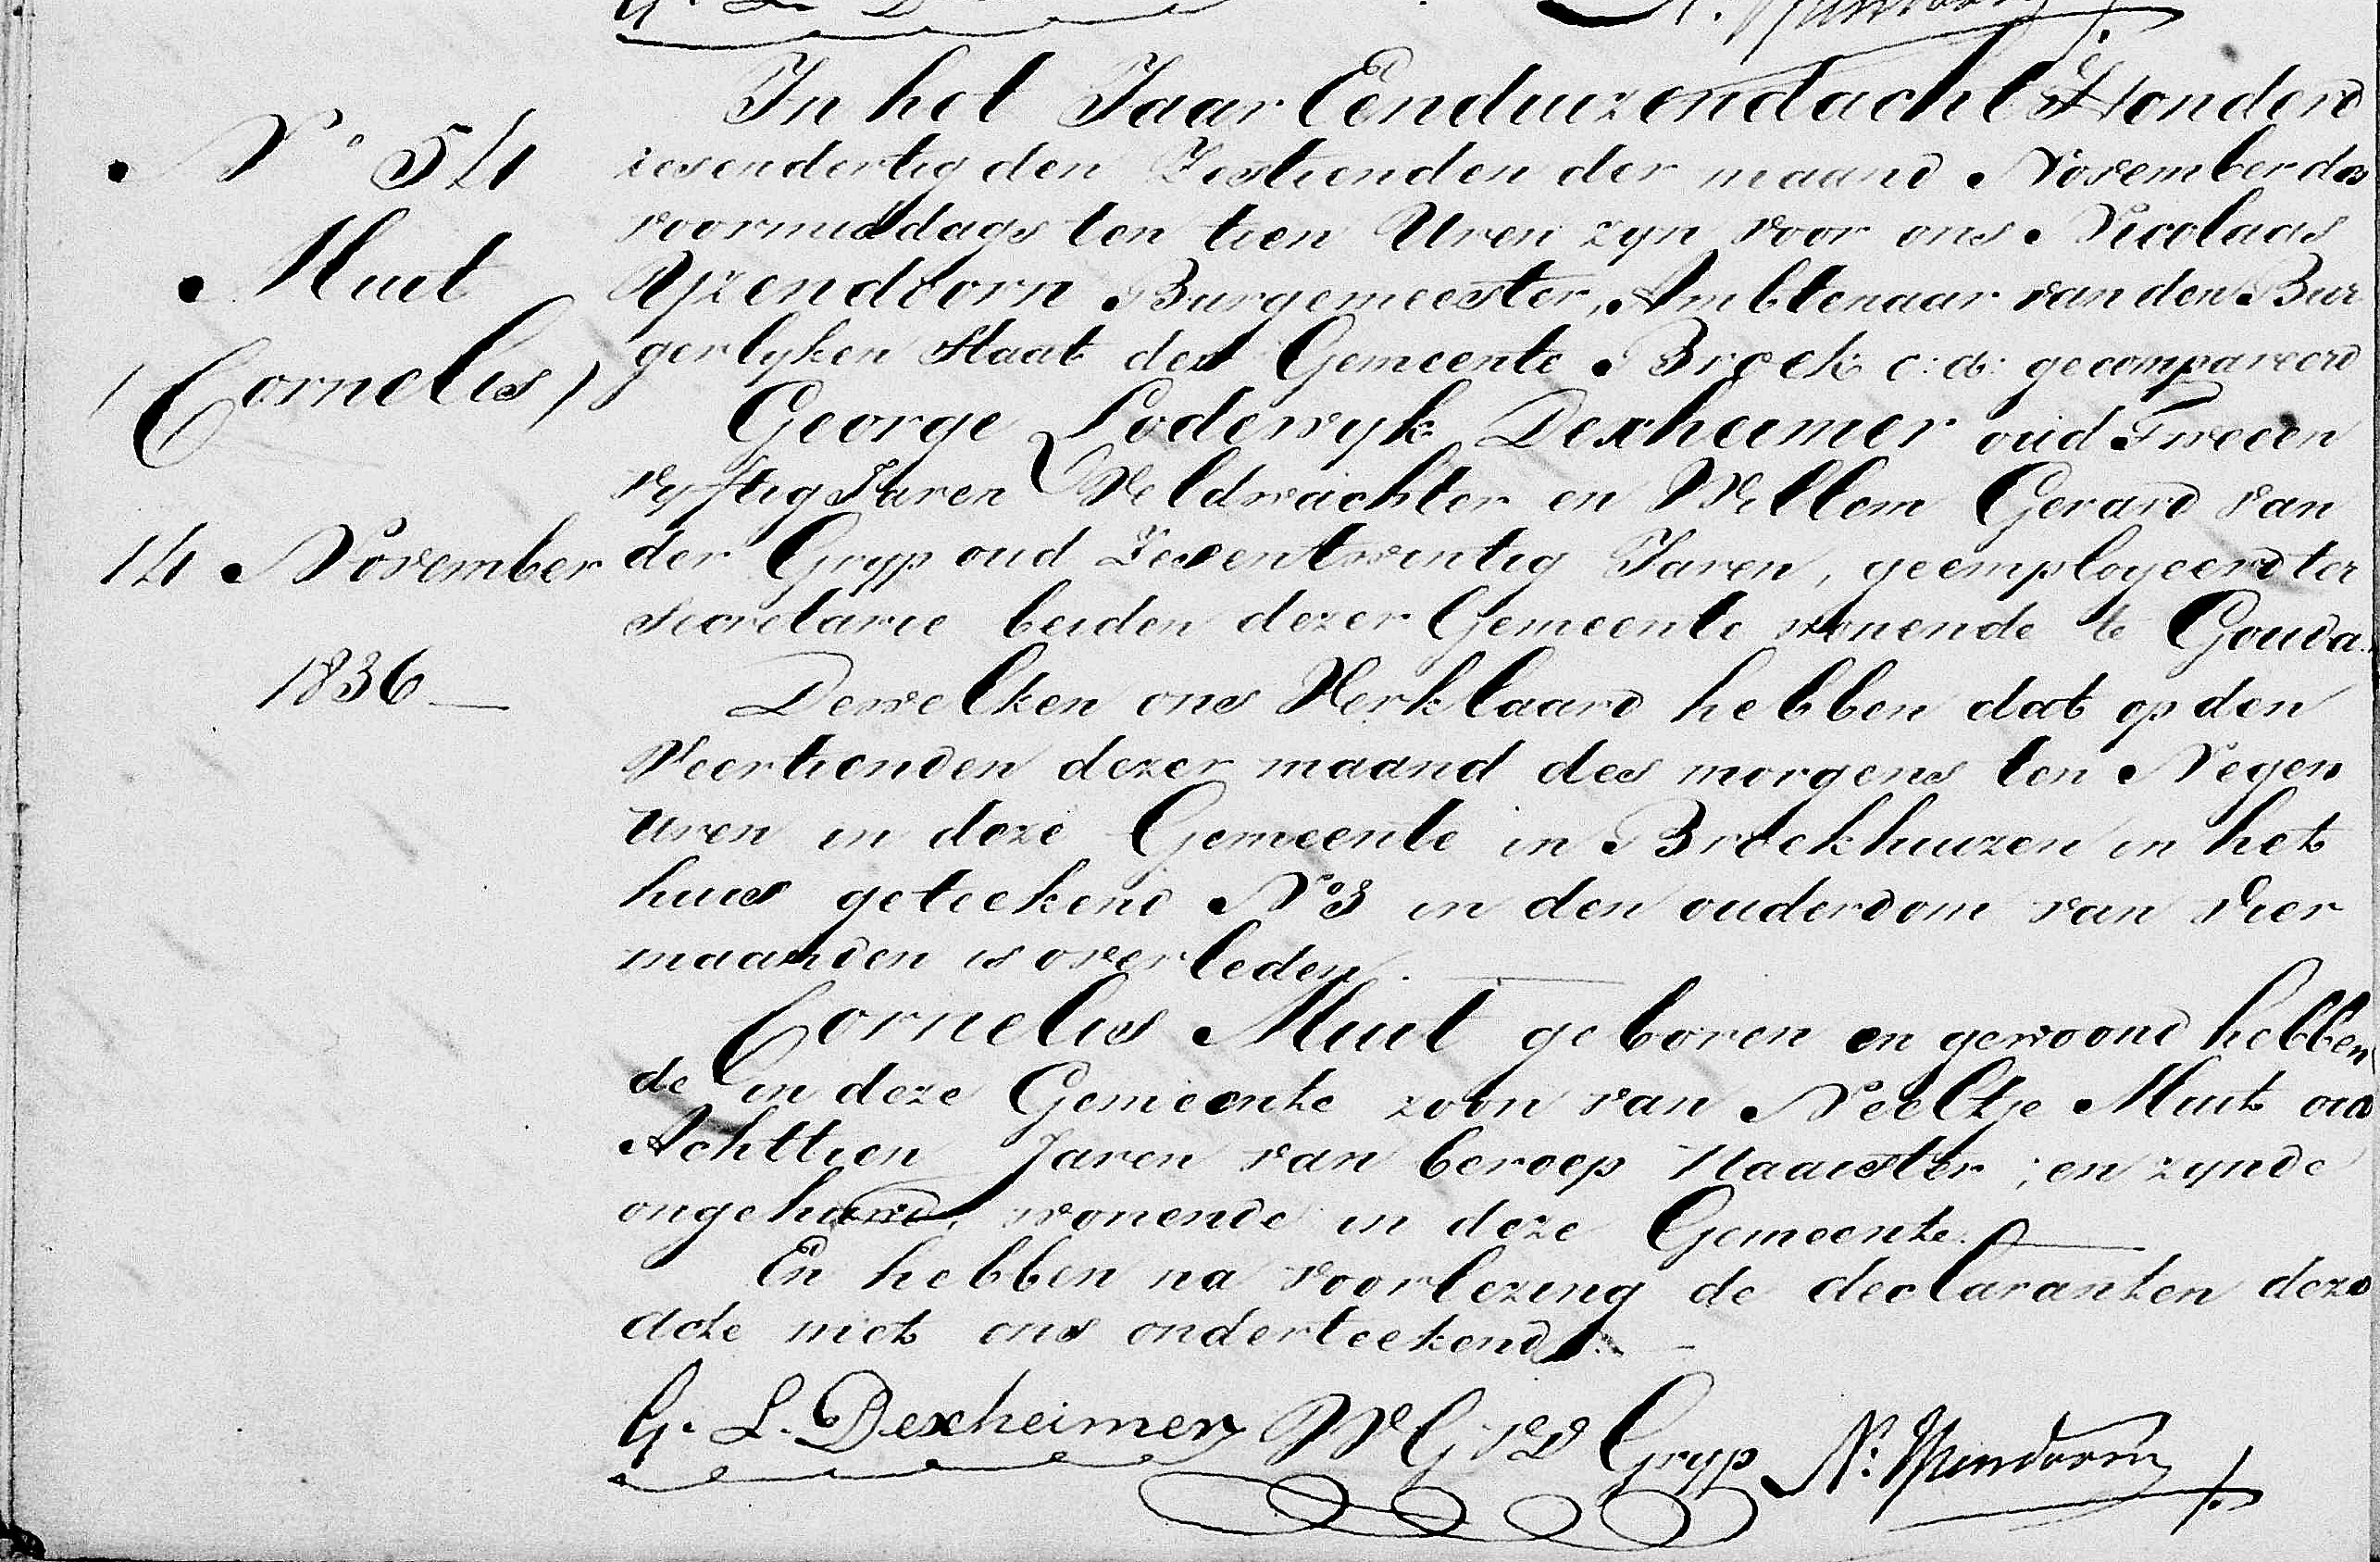 In het Jaar Eenduizendacht Honderd
N° 54
zesendertig den Zestienden der maand November des
voormiddags ten tien Uren zyn voor ons Nicolaas
Muit
Yzendoorn Burgemeester, Ambtenaar van den Bur
gerlyken Staat der Gemeente Broek c: a: gecompareerd
(Cornelis)
George Lodewyk Dexheimer oud Tweeen
vyftig Jaren Veldwachter en Willem Gerard van
14 November
der Gryp oud Zesentwintig Jaren, geemployeerd ter
secretarie beiden dezer Gemeente wonende te Gouda.
1836
Dewelken ons Verklaard hebben dat op den
Veertienden dezer maand des morgens ten Negen
Uren in deze Gemeente in Broekhuizen in het
huis geteekend N° 3 in den ouderdom van Vier
maanden is overleden.
Cornelis Muit geboren en gewoond hebben
de in deze Gemeente zoon van Neeltje Muit oud
Achttien Jaren van beroep Naaister; en zynde
ongehuwd, wonende in deze Gemeente.
En hebben na voorlezing de declaranten deze
acte met ons onderteekend.
G. L. Dexheimer W G vd Gryp N: Yzendoorn